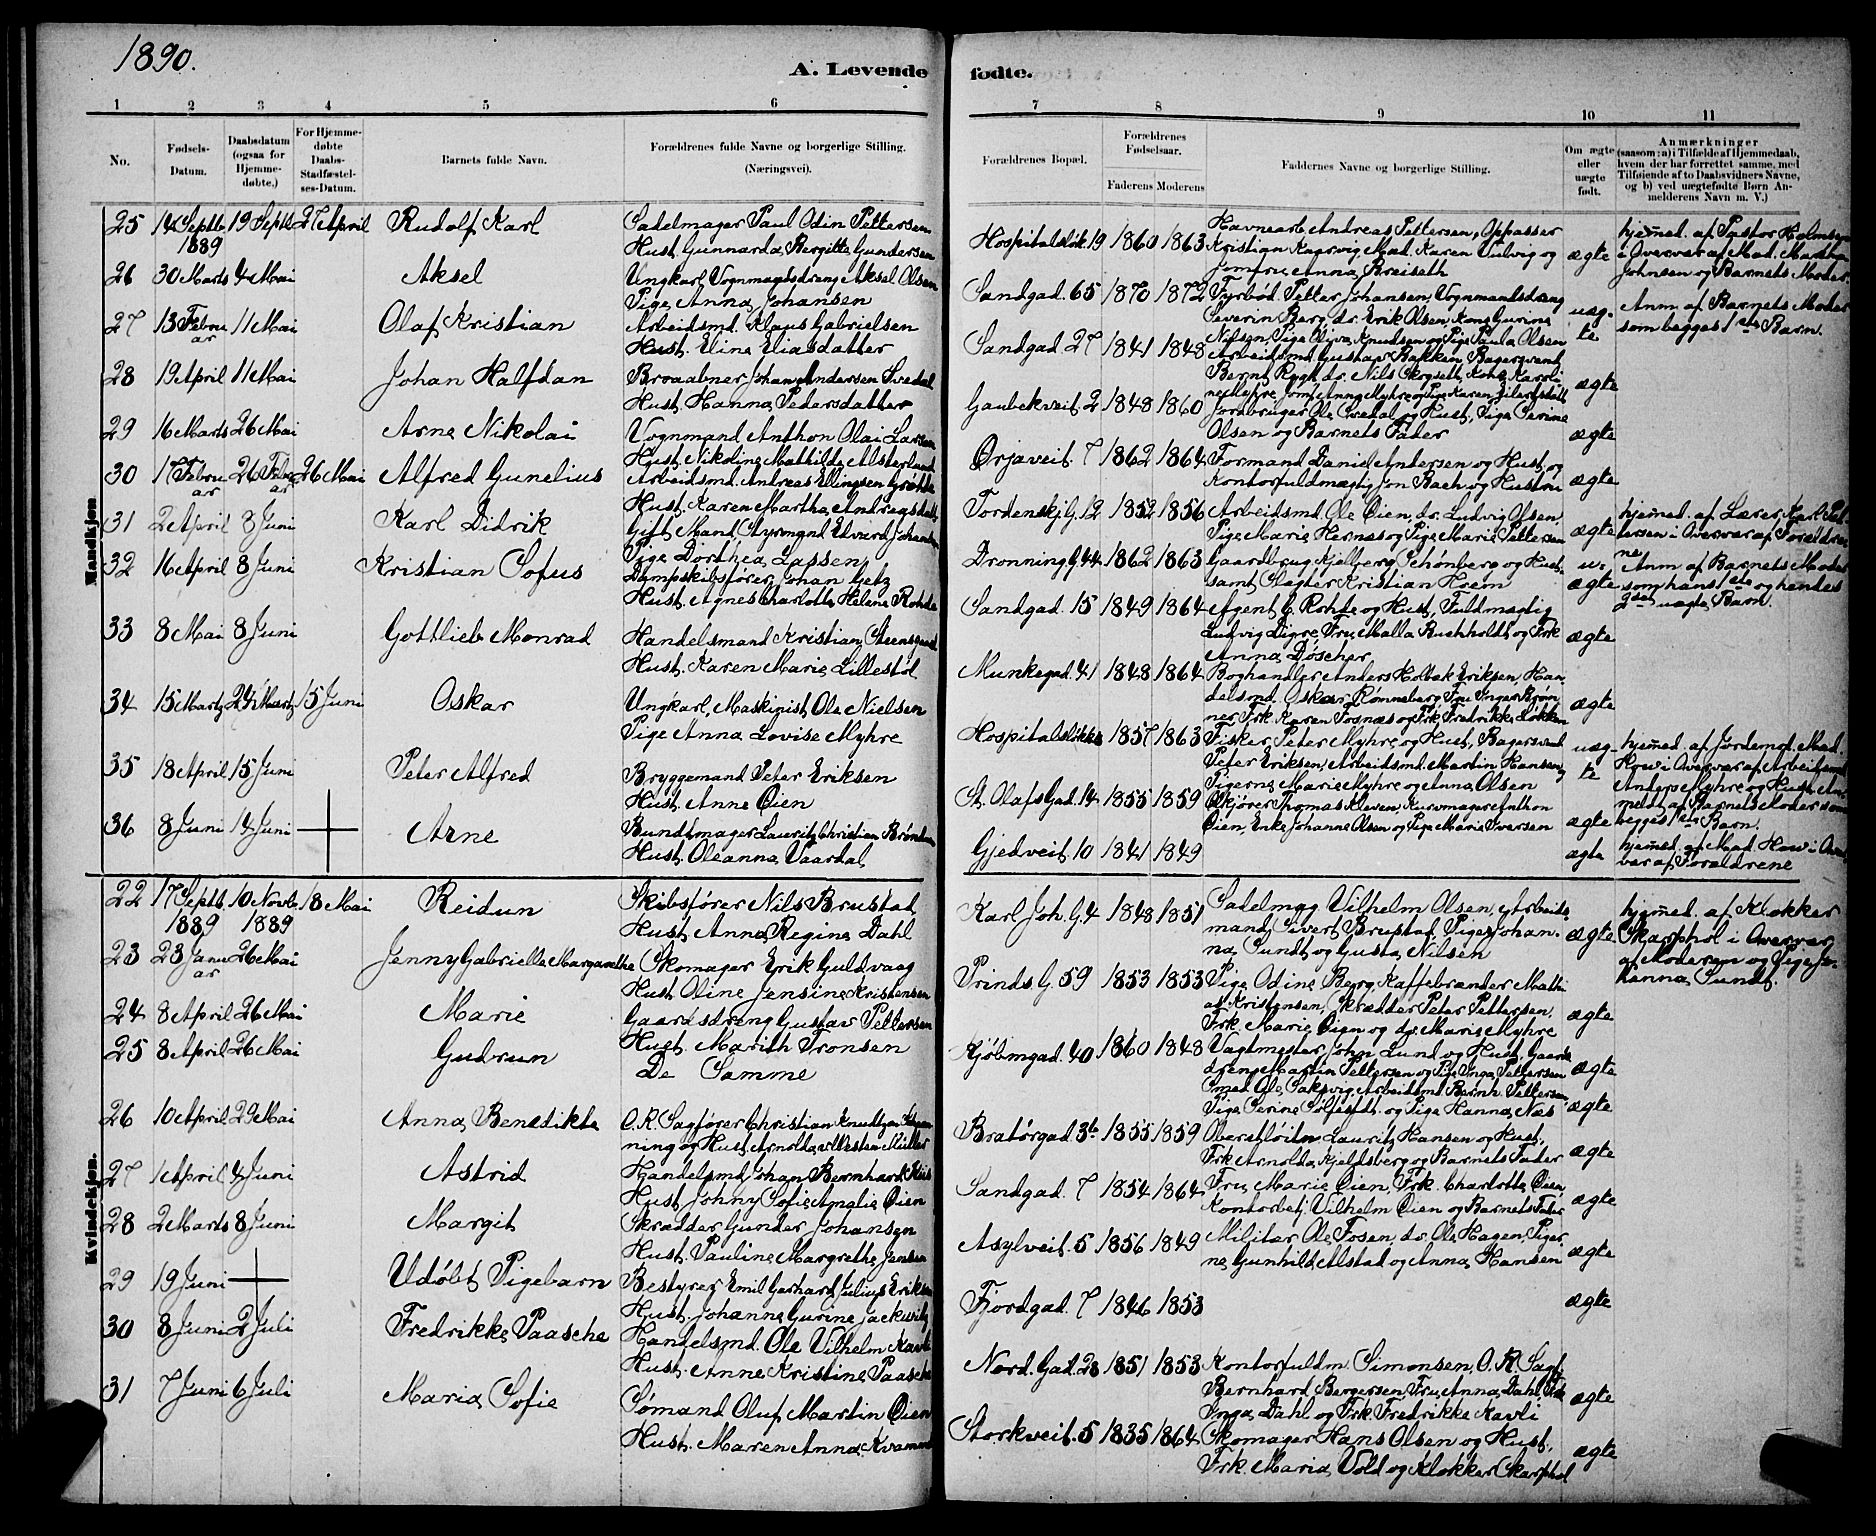 1890.
A. Levende fødte.
1 2 3 4 5 6 7 8 9 10 11
No.
Fødsels-Datum.
Daabsdatum (ogsaa for Hjemme-døbte.)
For Hjemme-døbte Daabs-Stadfæstel-ses-Datum.
Barnets fulde Navn.
Forældrenes fulde Navne og borgerlige Stilling. (Næringsvei).
Forældrenes Bopæl.
Forældrenes Fødselsaar.
Faderens Moderens
Faddernes Navne og borgerlige Stilling.
Om ægte eller uægte født.
Anmærkninger (saasom: a) i Tilfælde af Hjemmedaab, hvem der har forrettet samme, med Tilføiende af to Daabsvidners Navne, og b) ved uægtefødte Børn An-melderens Navn m. V.)
Mandkjøn
25 14 Septb 1889 19 Septb 27 April Rudolf Karl
Sadelmager Paul Odin Pettersen
Hust. Gunnarda Bergitte Gundersen
Hospitalsløk. 19 1860 1863
Havnearb. Andreas Pettersen, Oppasser
Kristian Kagsvig Mad. Karen Vulvig og
Jomfru Anna Breiseth
ægte
hjemmed. af Pastor Holmsen
i Overvær af Mad. Marthea
Johnsen og Barnets Moder
26 30 Marts 4 Mai Aksel
Ungkarl Vognmandsdreng Aksel Olsen
Pige Anna Johansen
Sandgad. 65 1870 1872
Fyrbød. Petter Johansen, Vognmandsdreng
Severin Berg, ds. Erik Olsen, Kone Gurine
Nilsen, Pige Olyva Knudsen og Pige Paula Olsen
uægte
Anm. af Barnets Moder
som begges 1ste Barn.
27 13 Februar 11 Mai Olaf Kristian
Arbeidsmd. Klaus Gabrielsen
Hust. Eline Eliasdatter
Sandgad. 27 1841 1848
Arbeidsmd. Gustav Bakken, Bagersvend
Bernt Rygh, ds. Nils
ægte
28 19 April 11 Mai Johan Halfdan
Broaabner Johan Andersen Svedal
Hust. Hanna Pedersdatter
Gaubekveit 2 1848 1860
Jordbruger Ole Svedal og Hust, Pige Serine
Olsen og Barnets Fader
ægte
29 16 Marts 26 Mai Arne Nikolai
Vognmand Anthon Olai Larsen
Hust. Nikoline Mathilde Alsterlund
Ørjaveit. 7 1862 1864
Formand Daniel Andersen og Hust. og
Kontorfuldmægtig Jon Bach og Hustru
ægte
30 17 Februar 26 Febr. 26 Mai Alfred Gunelius
Arbeidsmd. Andreas Ellingsen
Hust. Karen Martha Andreasdatter
Tordenskj. G. 12 1852 1856
Arbeidsmd. Ole Øien, ds. Ludvig Olsen,
Pige Marie Hernæs og Pige Marie Pettersen
ægte
hjemmed. af Lærer Karl Pet
tersen i Overvær af Forældre
ne
31 2 April 8 Juni Karl Didrik
Gift Mand Styrmand Edvard Johansen
Pige Dorthea Lassen
Dronning G. 44 1862 1863
Gaardbrug. Kjelberg Schønberg og Hust.
samt Slagter Kristian Hrem
uægte
Anm. af Barnets Moder
som hans 1ste og hendes
2det uægte Barn.
32 16 April 8 Juni Kristian Sofus
Dampskibsfører Johan Getz
Hust. Agnes Charlotte Helene Rohde
Sandgad. 15 1849 1864
Agent C. Rohde og Hust, Fuldmægtig
Ludvig Digre, Fru Malla Buchholdt og Frk
Anna Døscher
ægte
33 8 Mai 8 Juni Gottlieb Monrad
Handelsmand Kristian Steensgaard
Hust. Karen Marie Lillestøl
Munkegad. 41 1848 1864
Boghandler Anders Holbæk Eriksen, Han
delsmd. Oskar Rømmeberg, Fru Inger Brøm
ner, Frk. Karen Fosnæs og Frk. Fredrikke Løkken
ægte
34 15 Marts 24 Marts 15 Juni Oskar
Ungkarl, Maskinist Ole Nielsen
Pige Anna Lovise Myhre
Hospitalsløkke 1857 1863
Fisker Peter Myhre og Hust, Bagersvend
Peter Eriksen, Arbeidsmd. Martin Hansen,
Pigerne Marie Myhre og Anna Olsen
uægte
hjemmed. af Jordemor Mad.
How i Overvær af Arbeidsmd
Anders Myhre og Hust. An
meldt af Barnets Moder som
begges 1ste Barn.
35 18 April 15 Juni Peter Alfred
Bryggemand Peter Eriksen
Hust. Anne Øien
St. Olafs Gad. 14 1855 1859
Thomas Kleven, Kurvmager Anthon
Øien, Enke Johanne Olsen og Pige Marie Iversen
ægte
36 8 Juni 14 Juni Arne
Bundtmager Lauritz Christian Brøndum
Hust. Oleanna Vaardal
Gjedveit. 10 1841 1849
ægte
hjemmed. af Mad. How i Over
vær af Forældrene
Kvindekjøn.
22 17 Septb. 1889 10 Novb. 1889 18 Mai Reidun
Skibsfører Nils Brustad
Hust. Anna Regine Dahl
Karl Joh. G. 4 1848 1851
Sadelmag Vilhelm Olsen, Arbeids
mand Sivert Brustad, Piger Johan
na Sundt og Gusta Nilsen
ægte
hjemmed. af Klokker
Skarphol i Overvær
af Moderen og Pige Jo
hanna Sundt.
23 23 Januar 26 Mai Jenny Gabrielle Margarethe
Skomager Erik Guldvaag
Hust. Oline Jensine Kristensen
Prinds. G. 59 1853 1853
Pige Odine Berg, Kaffebrænder Matthi
as Kristensen, Skrædder Peter Pettersen,
Frk. Marie Øien og ds. Marie Myhre
ægte
24 8 April 26 Mai Marie
Gaardsdreng Gustav Pettersen
Hust. Marith Tronsen
Kjøbmgad. 40 1860 1848
Vagtmester John Lund og Hust, Gaards
dreng Martin Pettersen og Pige Inga Pettersen
ægte
25 8 April 26 Mai Gudrun
De Samme
Smed Ole Saksvig, Arbeidsmd Bernh. Pettersen,
Pige Serine Solfestdt. og Pige Hanna Næs
ægte
26 10 April 29 Mai Anna Benedikte
O.R. Sagfører Christian Knudtzon
ning og Hust. Arnolda Müller
Bratørgad. 3b 1855 1859
Oberstløitn. Laurits Hansen og Hust,
Frk. Arnolda Kjeldsberg og Barnets Fader
ægte
27 1 April 4 Juni Astrid
Handelsmd. Johan Bernhard
Hust. Johny Sofie Amalie Øien
Sandgad. 7 1854 1864
Fru Marie Øien, Frk. Charlotte Øien
Kontorbetj. Vilhelm Øien og Barnets Fader
ægte
28 2 Marts 8 Juni Margit
Skrædder Gunder Johansen
Hust. Pauline Margrethe Jensen
Asylveit. 5 1856 1849
Militær Ole Fosen, ds. Ole Hagen, Piger
ne Gunhild Alstad og Anna Hansen
ægte
29 19 Juni Udøbt Pigebarn
Bestyrer Emil Gerhard Julius Eriksen
Hust. Johanne Gurine
Fjordgad. 7 1846 1853
ægte
30 8 Juni 2 Juli Fredrikke Paasche
Handelsmd. Ole Vilhelm Kavli
Hust. Anne Kristine Paasche
Nord. Gad. 28 1851 1853
Kontorfuldm. Simonsen, O.R. Sagf.
Bernhard Bergersen, Fru Anna Dahl, Frk
Inga Dahl og Frk. Fredrikke Kavli
ægte
31 7 Juni 6 Juli Maria Sofie
Sømand Oluf Martin Øien
Hust. Maren Anna Kvammen
Storkveit. 5 1835 1864
Skomager Hans Olsen og Hust,
Frk. Maria Vold og Klokker Skarphol
ægte